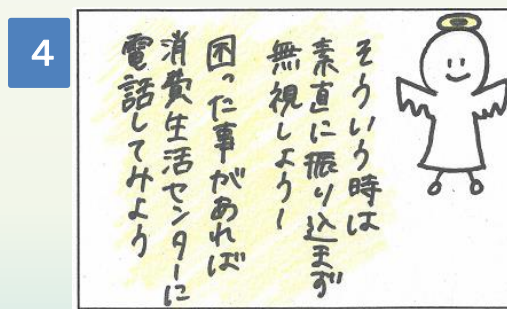 4
そういう時は
素直に振り込まず
無視しようー
困った事があれば
消費生活センターに
電話してみよう